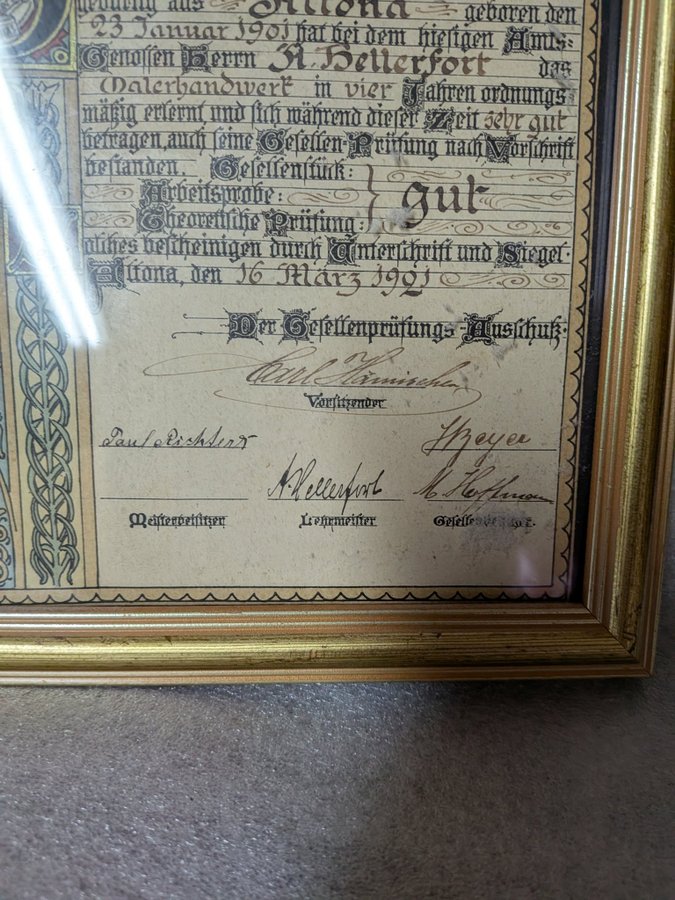 gebürtig aus Altona geboren den
23 Januar 1901 hat bei dem hiesigen Amts-
Genossen Herrn A. Hellerfort das
Malerhandwerk in vier Jahren ordnungs
mäßig erlernt und sich während dieser Zeit sehr gut
betragen, auch seine Gesellen-Prüfung nach Vorschrift
bestanden. Gesellenstück:
Arbeitsprobe: gut
Theoretische Prüfung:
olches bescheinigen durch Unterschrift und Siegel.
Altona, den 16 März 1921
Der Gesellenprüfungs-Ausschuß.
Carl
Vorsitzender
Paul Richter HBeyer
A. Hellerfort M. Hoffmann
Meisterbeisitzer Lehrmeister